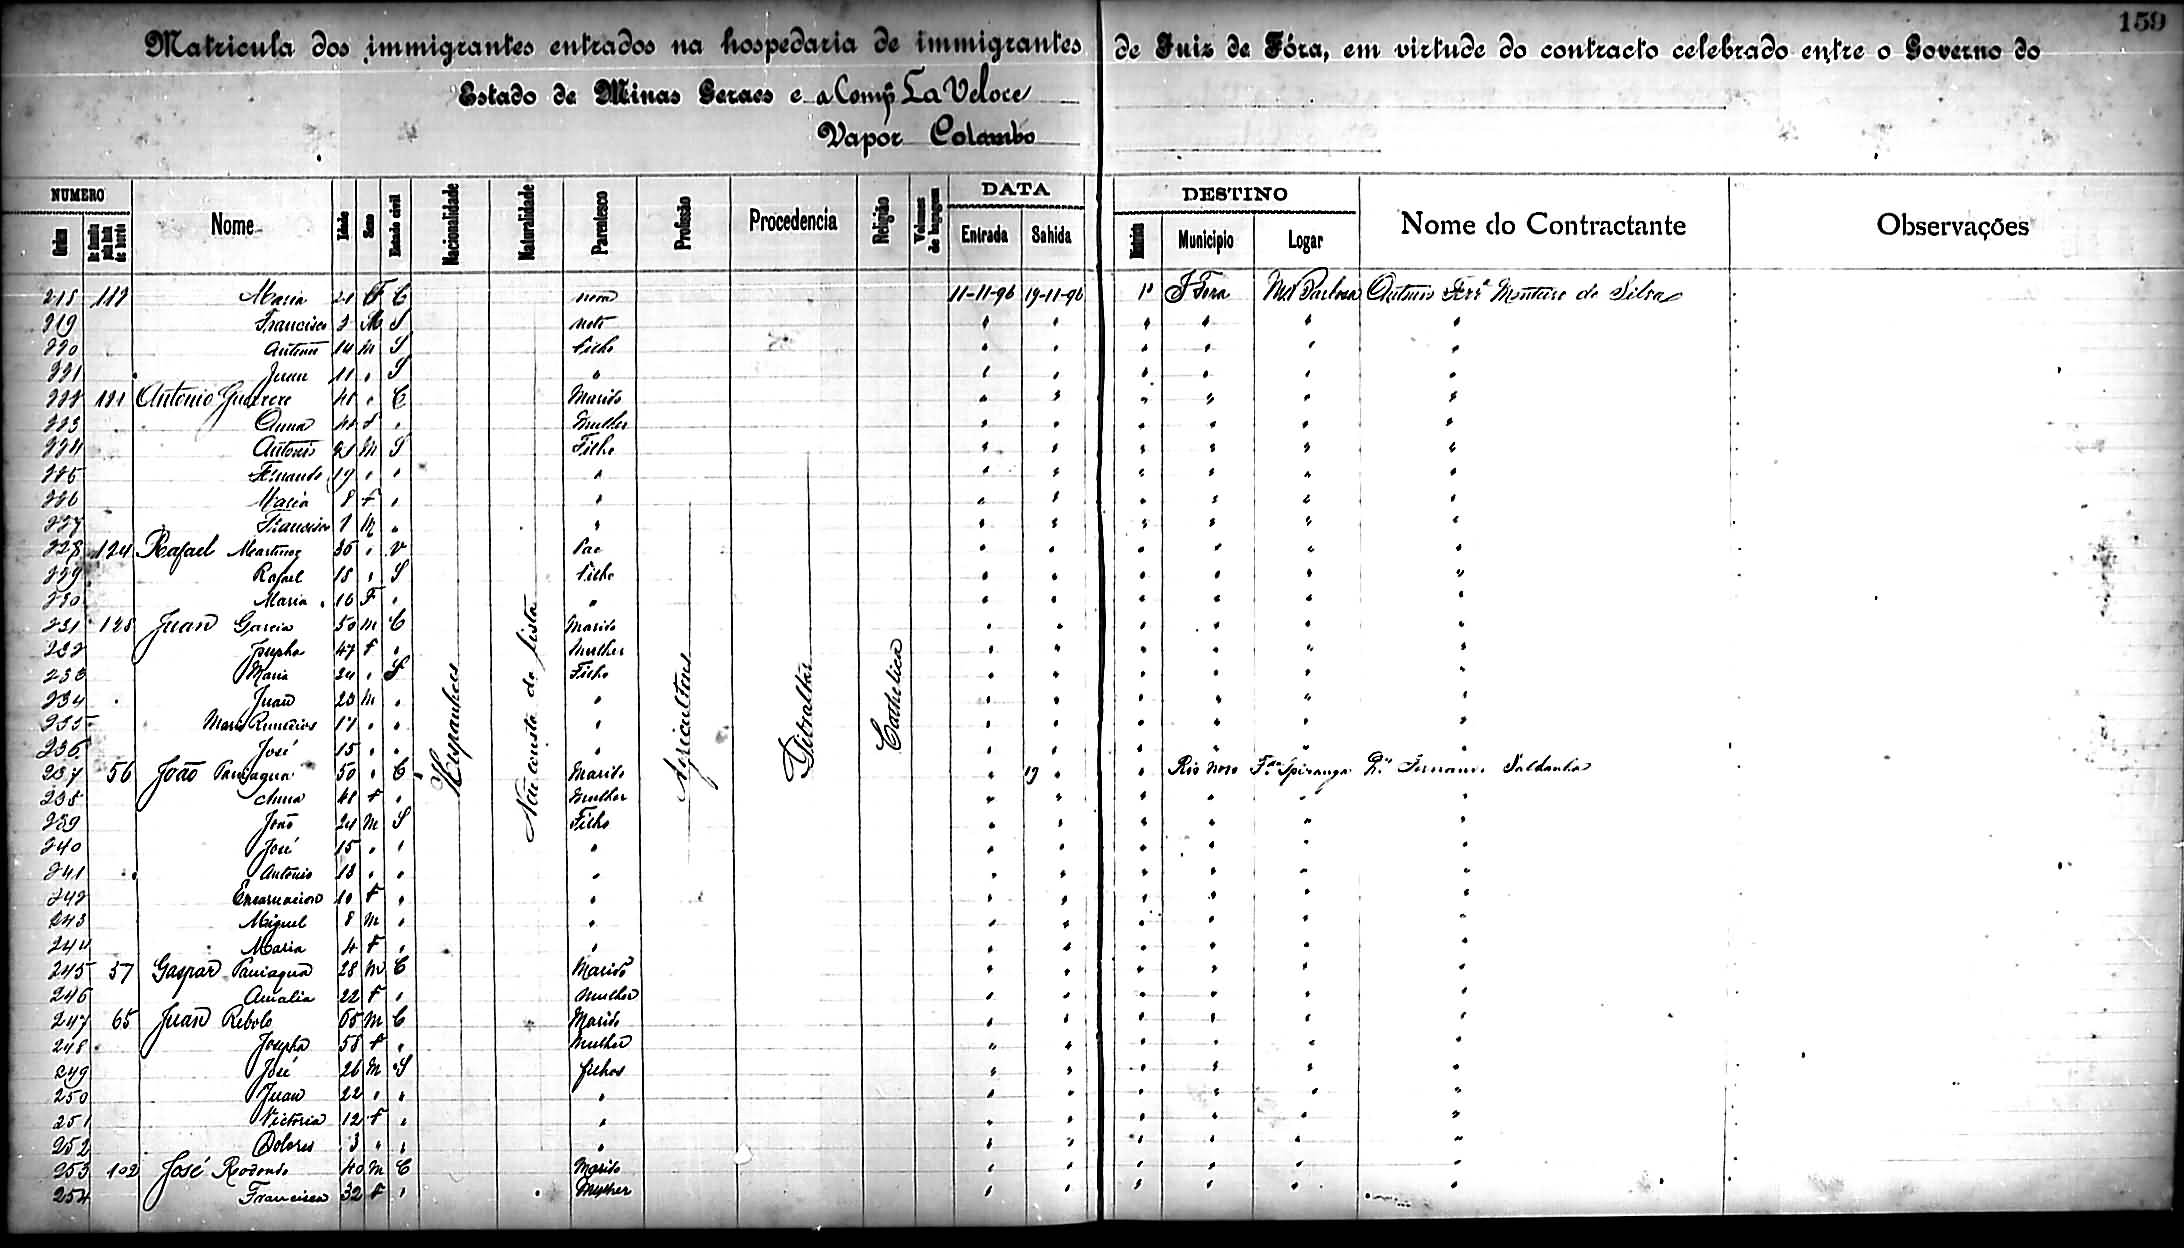 159
Matricula dos immigrantes entrados na hospedaria de immigrantes de Juiz de Fóra, em virtude do contracto celebrado entre o Governo do
Estado de Minas Geraes e a Comp La Veloce
Vapor Colombo
NUMERO DATA DESTINO
Ordem Nome Idade Sexo Estado civil Nacionalidade Naturalidade Parentesco Profissão Procedencia Religião Volumes de bagagem Entrada Sahida Municipio Logar Nome do Contractante Observações
218 Maria 21 F C nora 11-11-96 19-11-96 1ª J Fora Mel Barbosa Antonio Monteiro da Silva
219 Francisco 3 M S neto
220 Antonio 14 M S Filho
221 Juan 11 " S "
222 121 Antonio Guerrere " C Marido
223 Anna F " Mulher
224 Antonio 21 M S Filho
225 Fernando 19 " " "
226 Maria 8 F " "
227 Francisco 1 M " "
228 124 Rafael Martinez 36 " V Pae
229 Rafael 18 " S Filho
230 Maria 16 F " "
231 128 Juan Garcia 50 M C Marido
232 Josepha 47 F " Mulher
233 Maria 24 " S Filho
234 Juan 23 M " "
235 Maria Remedios 17 " " "
236 José 15 " " "
237 56 João Paniagua 50 " C Marido " 19 " " Rio Novo Fda Ypiranga Dr Fernando Saldanha
238 Anna 48 F " Mulher
239 João 24 M S Filho
240 José 15 " " "
241 Antonio 13 " " "
242 Encarnacion 10 F " "
243 Miguel 8 M " "
244 Maria 4 F " "
245 57 Gaspar Paniagua 28 M C Marido
246 Amalia 22 F " Mulher
247 65 Juan Rebolo 65 M C Marido
248 Josepha 58 F " Mulher
249 José 26 M S filhos
250 Juan 22 " " "
251 Victoria 12 F " "
252 Dolores 3 " " "
253 102 José Redondo 40 M C Marido
254 Francisca 32 F " Mulher
Hespanhoes
Não consta da lista
Agricultores
Gibraltar
Catholica